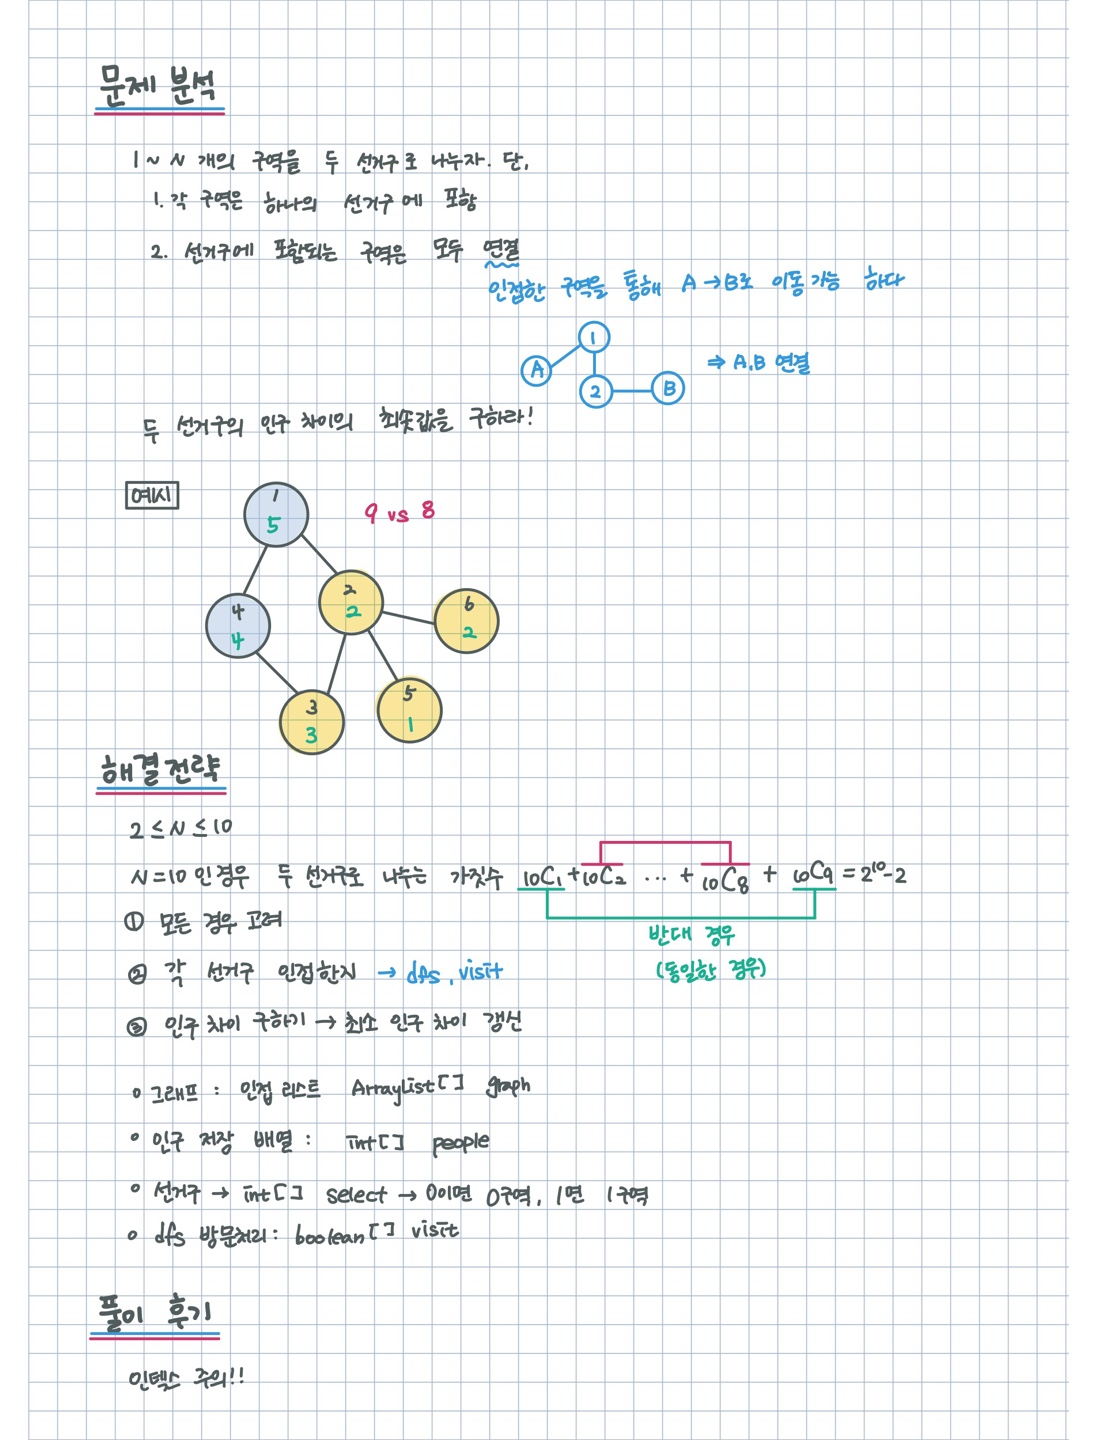 문제 분석
1 ~ N 개의 구역을 두 선거구로 나누자. 단,
1. 각 구역은 하나의 선거구에 포함
2. 선거구에 포함되는 구역은 모두 연결
인접한 구역을 통해 A → B로 이동 가능 하다
1
A
2
B
⇒ A,B 연결
두 선거구의 인구 차이의 최솟값을 구하라!
예시
9 vs 8
1
5
2
2
6
2
4
4
3
3
5
1
해결전략
2 ≤ N ≤ 10
N = 10 인 경우 두 선거구로 나누는 가짓수 10C1 + 10C2 ... + 10C8 + 10C9 = 2^10 - 2
반대 경우
(동일한 경우)
① 모든 경우 고려
② 각 선거구 인접한지 → dfs, visit
③ 인구 차이 구하기 → 최소 인구 차이 갱신
o 그래프 : 인접 리스트 ArrayList[] graph
o 인구 저장 배열 : int[] people
o 선거구 → int[] select → 0이면 0구역, 1면 1구역
o dfs 방문처리 : boolean[] visit
풀이 후기
인덱스 주의!!